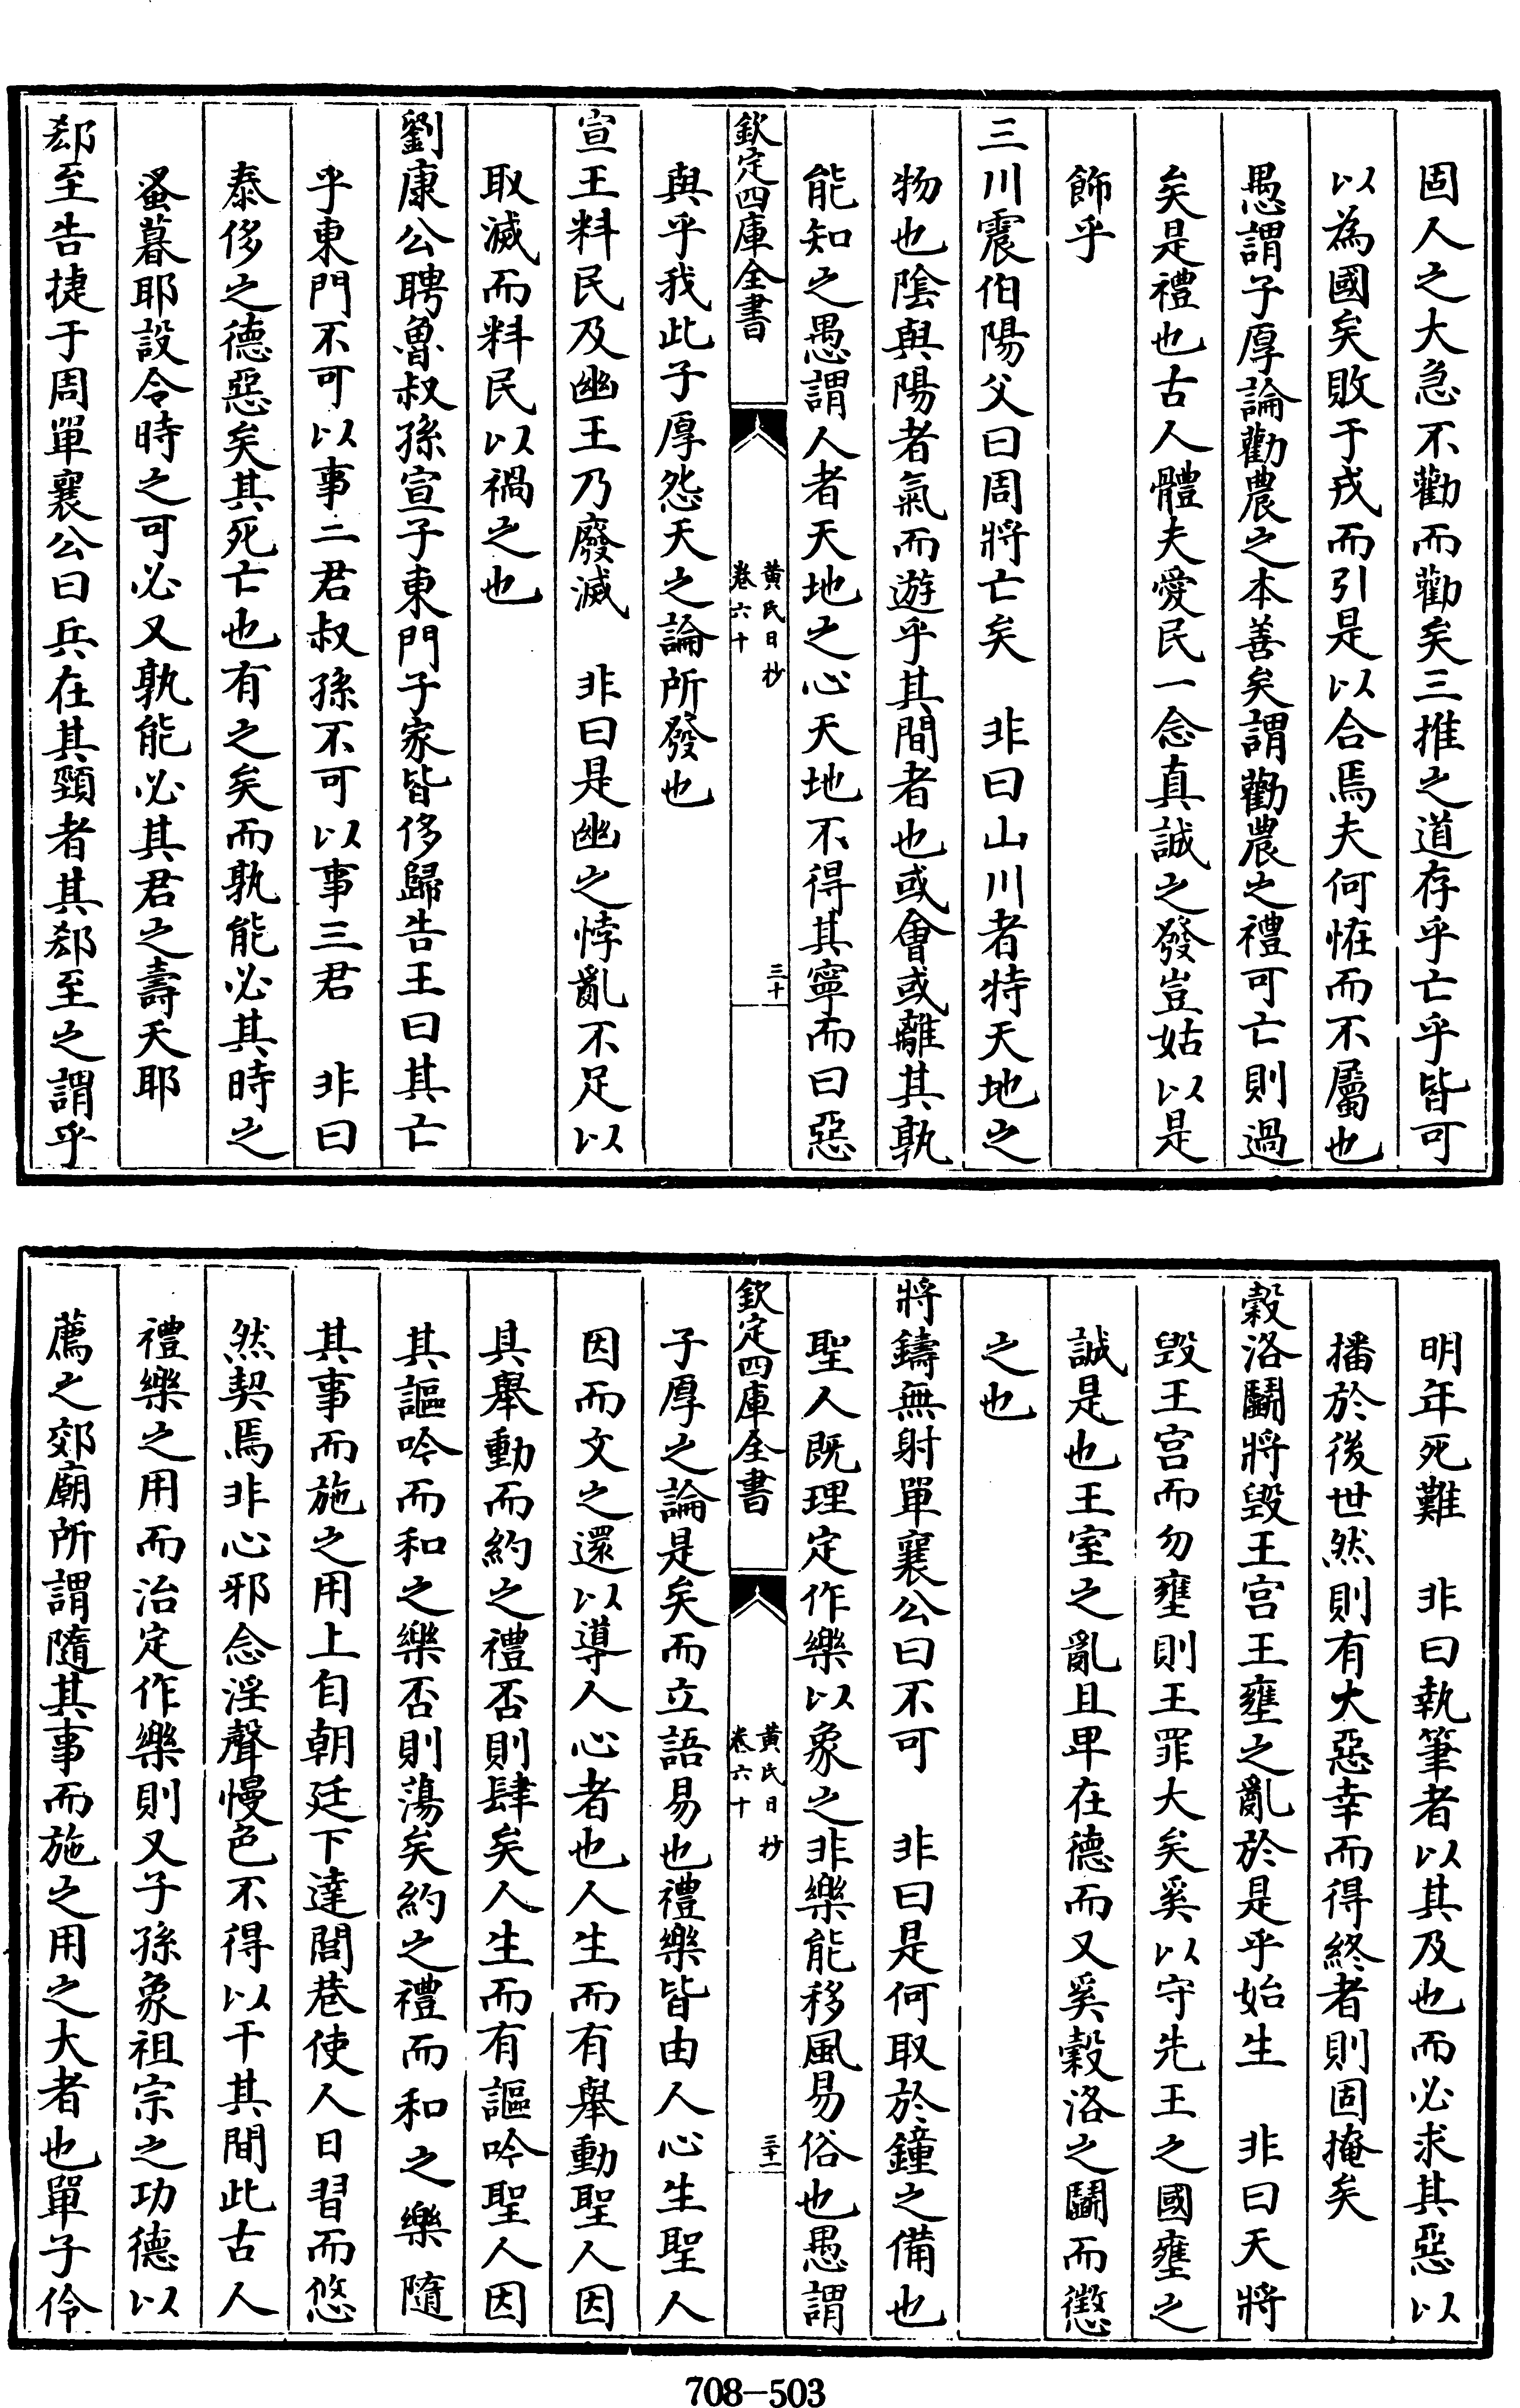 固人之大急不勸而勸矣三推之道存乎亡乎皆可
以為國矣敗于戎而引是以合焉夫何恠而不屬也
愚謂子厚論勸農之本善矣謂勸農之禮可亡則過
矣是禮也古人體夫愛民一念真誠之發豈姑以是
飾乎
三川震伯陽父曰周將亡矣　非曰山川者特天地之
物也陰與陽者氣而遊乎其間者也或會或離其孰
能知之愚謂人者天地之心天地不得其寧而曰惡
欽定四庫全書
黄氏日抄
卷六十
三十
與乎我此子厚怨天之論所發也
宣王料民及幽王乃廢滅　非曰是幽之悖亂不足以
取滅而料民以禍之也
劉康公聘魯叔孫宣子東門子家皆侈歸告王曰其亡
乎東門不可以事二君叔孫不可以事三君　非曰
泰侈之德惡矣其死亡也有之矣而孰能必其時之
蚤暮耶設令時之可必又孰能必其君之壽夭耶
郄至告捷于周單襄公曰兵在其頸者其郄至之謂乎
明年死難　非曰執筆者以其及也而必求其惡以
播於後世然則有大惡幸而得終者則固掩矣
穀洛鬭將毀王宫王壅之亂於是乎始生　非曰天將
毀王宫而勿壅則王罪大矣奚以守先王之國壅之
誠是也王室之亂且卑在德而又奚穀洛之鬭而懲
之也
將鑄無射單襄公曰不可　非曰是何取於鐘之備也
聖人既理定作樂以象之非樂能移風易俗也愚謂
欽定四庫全書
黄氏日抄
卷六十
三十一
子厚之論是矣而立語易也禮樂皆由人心生聖人
因而文之還以導人心者也人生而有舉動聖人因
其舉動而約之禮否則肆矣人生而有謳吟聖人因
其謳吟而和之樂否則蕩矣約之禮而和之樂隨
其事而施之用上自朝廷下達閭巷使人日習而悠
然契焉非心邪念淫聲慢色不得以干其間此古人
禮樂之用而治定作樂則又子孫象祖宗之功德以
薦之郊廟所謂隨其事而施之用之大者也單子伶
708-503